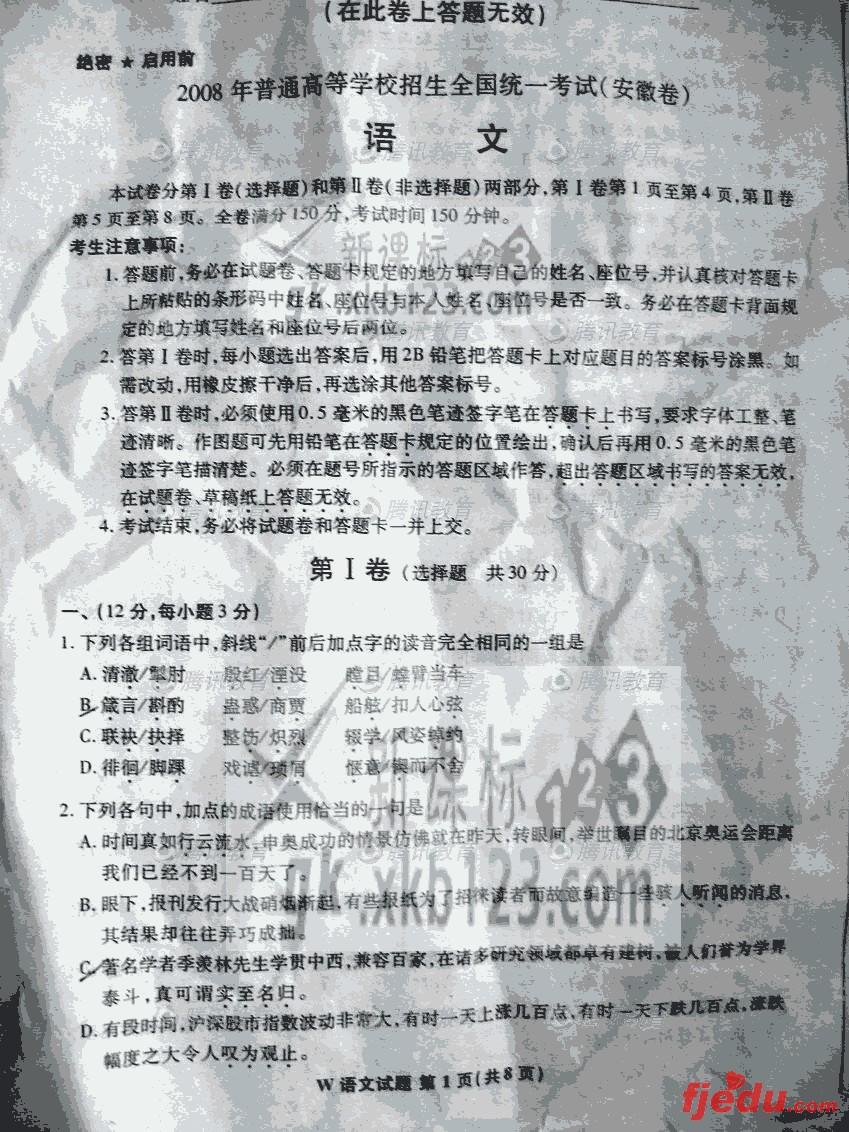 (在此卷上答题无效)
绝密 ★ 启用前
2008 年普通高等学校招生全国统一考试(安徽卷)
语 文
本试卷分第Ⅰ卷(选择题)和第Ⅱ卷(非选择题)两部分,第Ⅰ卷第1页至第4页,第Ⅱ卷
第5页至第8页。全卷满分150分,考试时间150分钟。
考生注意事项:
1. 答题前,务必在试题卷、答题卡规定的地方填写自己的姓名、座位号,并认真核对答题卡
上所粘贴的条形码中姓名、座位号与本人姓名、座位号是否一致。务必在答题卡背面规
定的地方填写姓名和座位号后两位。
2. 答第Ⅰ卷时,每小题选出答案后,用2B铅笔把答题卡上对应题目的答案标号涂黑。如
需改动,用橡皮擦干净后,再选涂其他答案标号。
3. 答第Ⅱ卷时,必须使用0.5毫米的黑色笔迹签字笔在答题卡上书写,要求字体工整、笔
迹清晰。作图题可先用铅笔在答题卡规定的位置绘出,确认后再用0.5毫米的黑色笔
迹签字笔描清楚。必须在题号所指示的答题区域作答,超出答题区域书写的答案无效,
在试题卷、草稿纸上答题无效。
4. 考试结束,务必将试题卷和答题卡一并上交。
第Ⅰ卷(选择题 共30分)
一、(12分,每小题3分)
1. 下列各组词语中,斜线“/”前后加点字的读音完全相同的一组是
A. 清澈/掣肘 殷红/湮没 瞠目/螳臂当车
B. 箴言/斟酌 蛊惑/商贾 船舷/扣人心弦
C. 联袂/抉择 整饬/炽烈 辍学/风姿绰约
D. 徘徊/脚踝 戏谑/琐屑 惬意/锲而不舍
2. 下列各句中,加点的成语使用恰当的一句是
A. 时间真如行云流水,申奥成功的情景仿佛就在昨天,转眼间,举世瞩目的北京奥运会距离
我们已经不到一百天了。
B. 眼下,报刊发行大战硝烟渐起,有些报纸为了招徕读者而故意编造一些骇人听闻的消息,
其结果却往往弄巧成拙。
C. 著名学者季羡林先生学贯中西,兼容百家,在诸多研究领域都卓有建树,被人们誉为学界
泰斗,真可谓实至名归。
D. 有段时间,沪深股市指数波动非常大,有时一天上涨几百点,有时一天下跌几百点,涨跌
幅度之大令人叹为观止。
W 语文试题 第1页(共8页)
新课标123
gk.xkb123.com
腾讯教育
fjedu.com